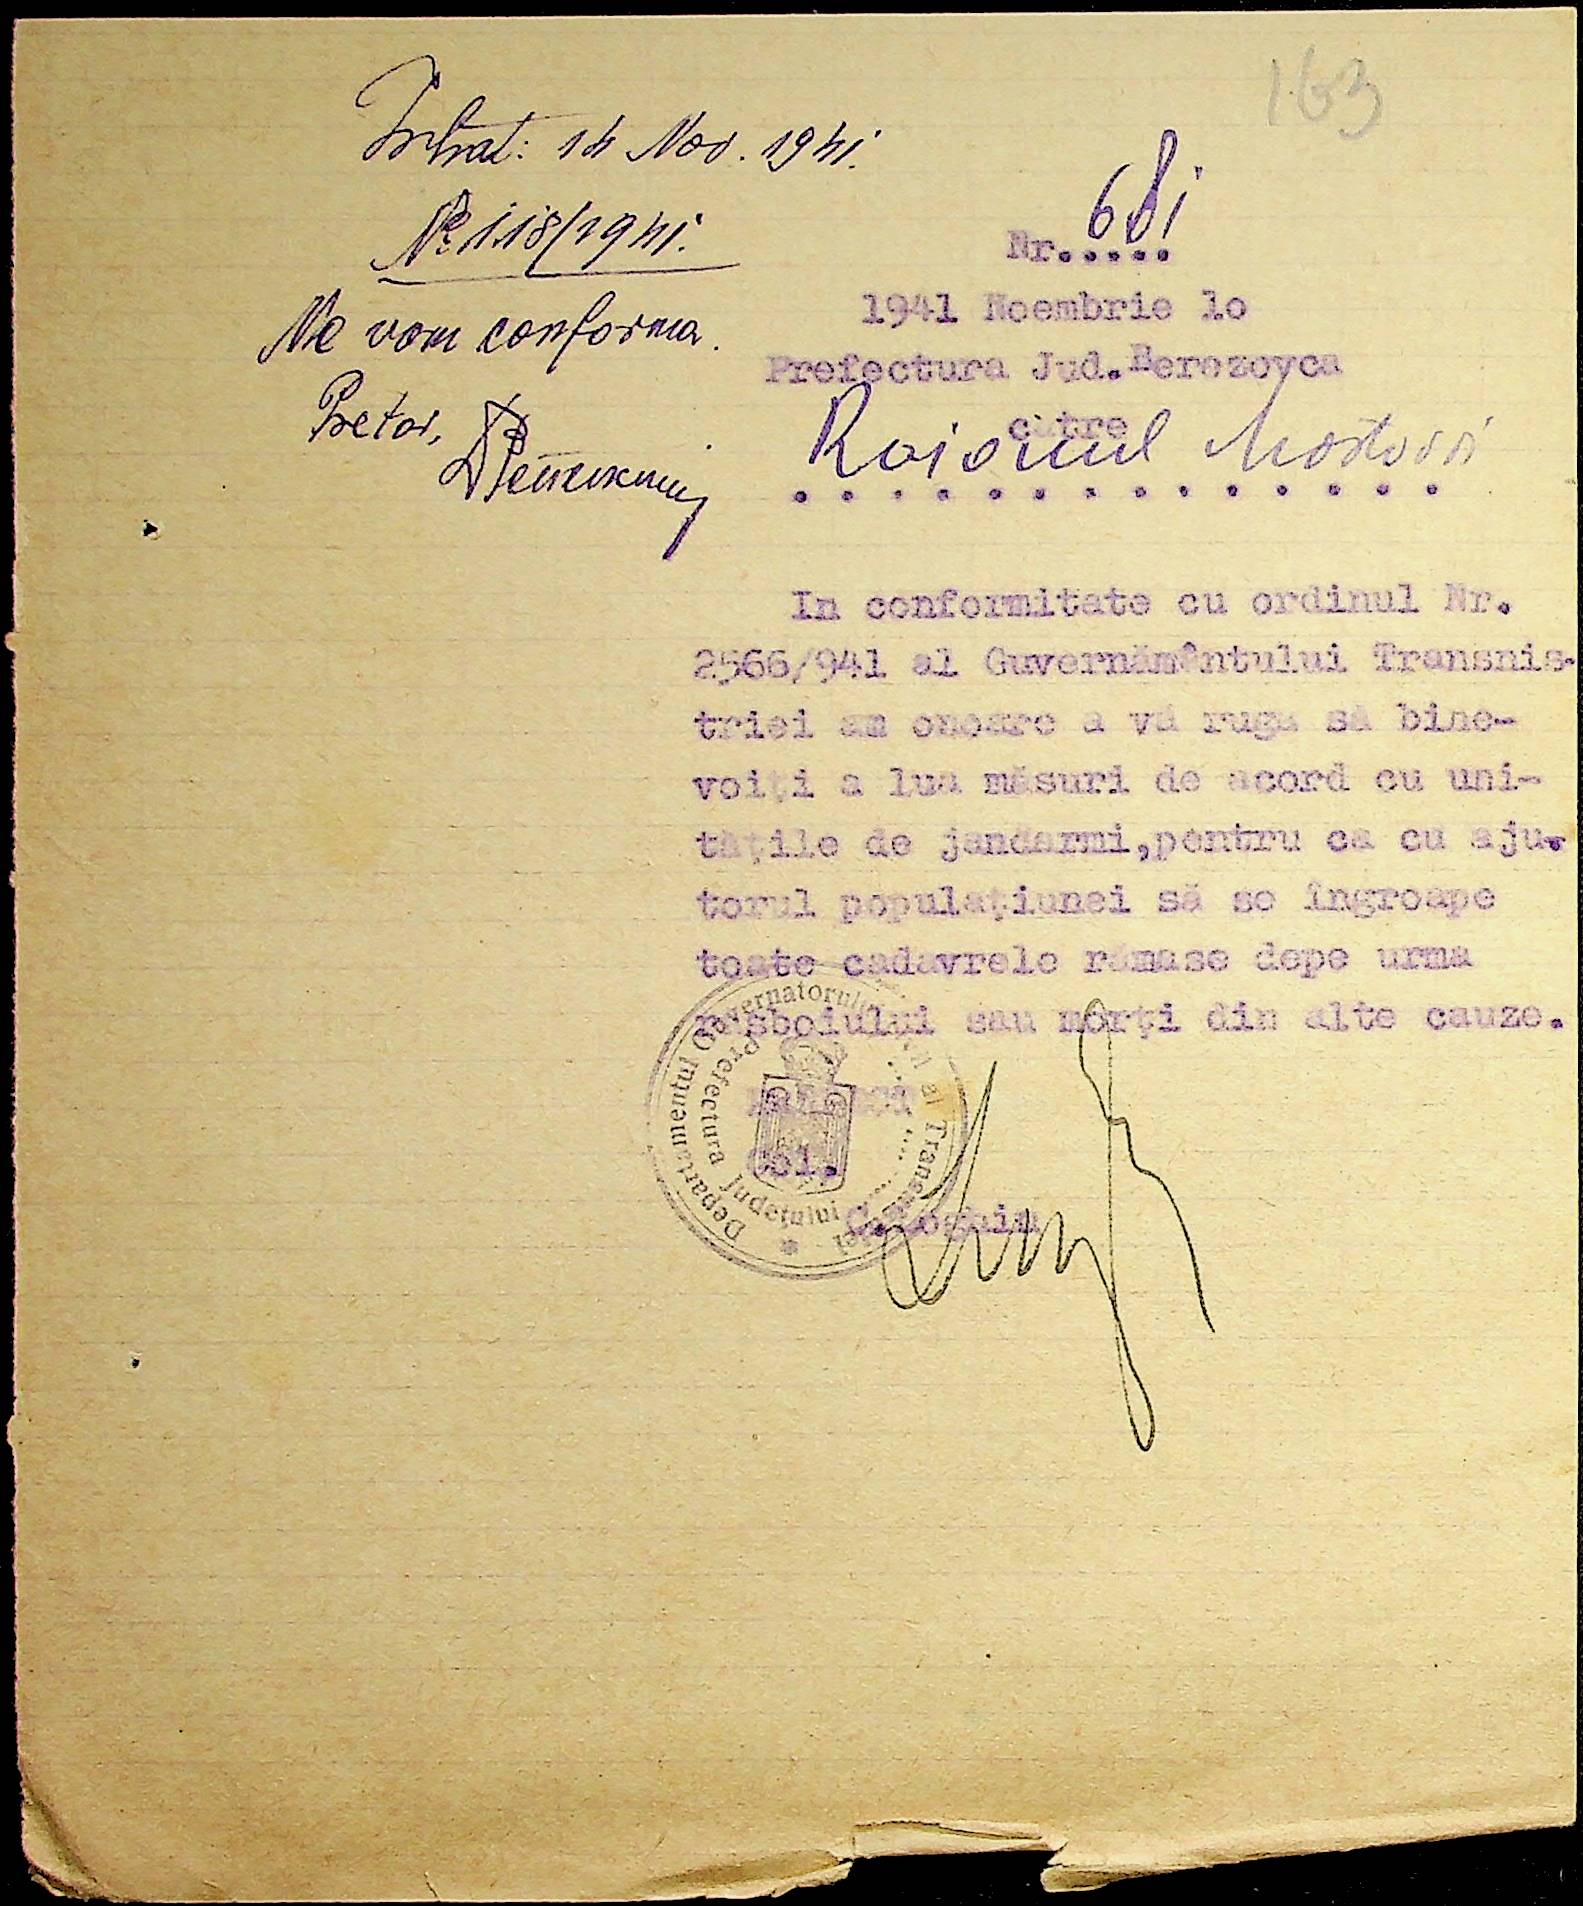 163
Intrat: 14 Nov. 1941.
Nº 118/1941.
Ne vom conforma.
Pretor,
Nr.....681
1941 Noembrie 1o
Prefectura Jud.Berezovca
către
Raionul Mostovoi
In conformitate cu ordinul Nr.
2566/941 al Guvernământului Transnis-
triei am onoare a vă ruga să bine-
voiți a lua măsuri de acord cu uni-
tățile de jandarmi,pentru ca cu aju-
torul populațiunei să se îngroape
toate cadavrele rămase depe urma
răsboiului sau morți din alte cauze.
Prefect
Col.
Loghin
Departamentul Guvernatorului al Transnistriei
Prefectura Județului